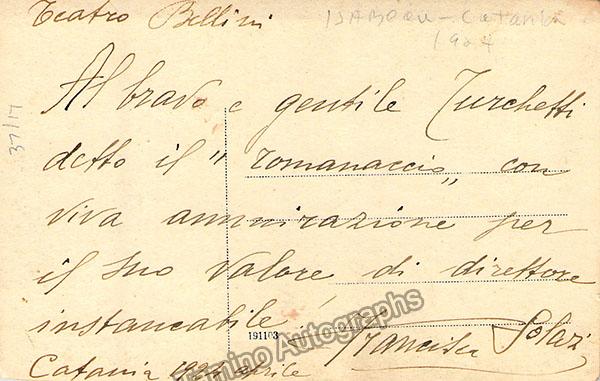 Teatro Bellini
ISABEAU - Catania
1927
Al bravo e gentile Turchetti
detto il "romanaccio" con
viva ammirazione per
il suo valore di direttore
instancabile!
191103
Francisca Solari
Catania 1927 aprile
Tamino Autographs